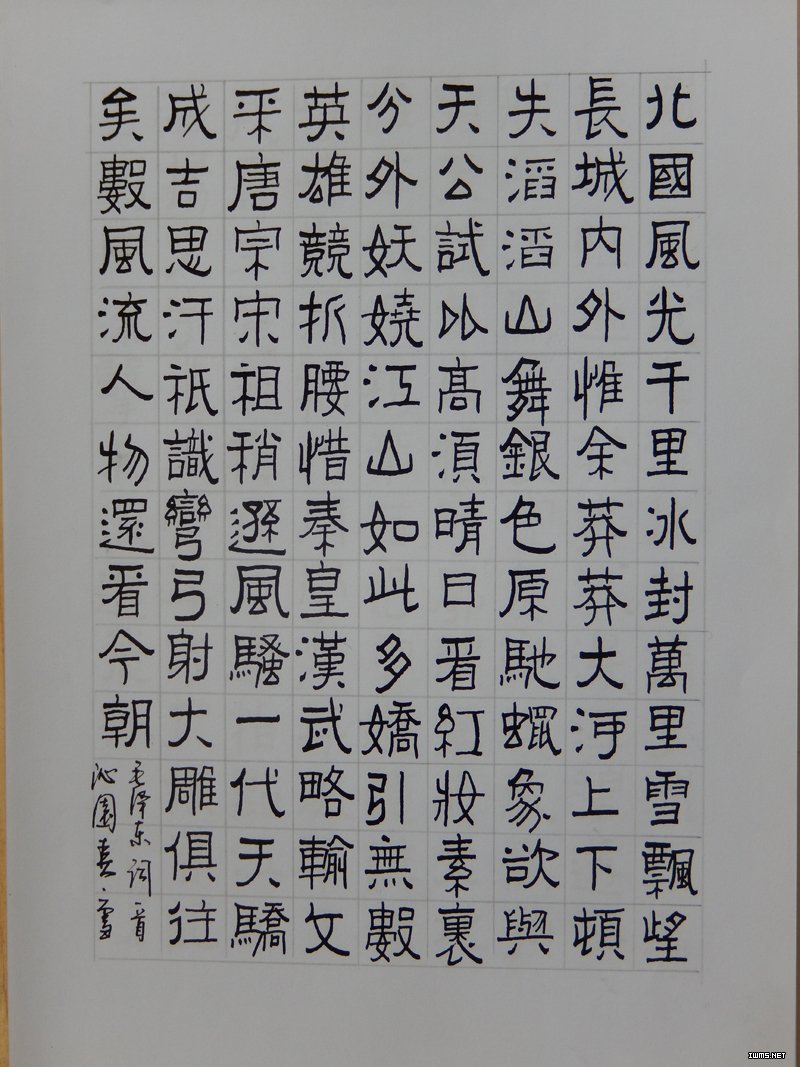 北國風光千里冰封萬里雪飄望
長城内外惟余莽莽大河上下頓
失滔滔山舞銀色原馳蠟象欲與
天公試比髙須晴日看紅妝素裹
分外妖嬈江山如此多嬌引無數
英雄競折腰惜秦皇漢武略輸文
采唐宗宋祖稍遜風騷一代天驕
成吉思汗祇識彎弓射大雕俱往
矣數風流人物還看今朝
毛泽东词一首
沁園春·雪
IWMS.NET